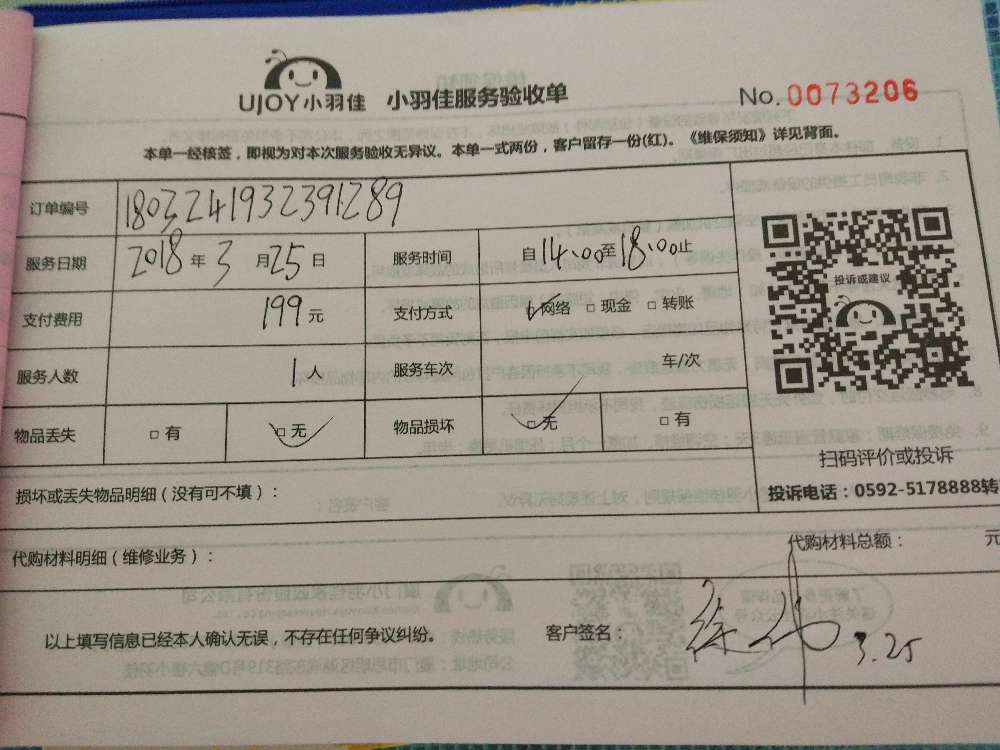 UJOY小羽佳 小羽佳服务验收单 No.0073206
本单一经核签，即视为对本次服务验收无异议。本单一式两份，客户留存一份(红)。《维保须知》详见背面。
订单编号 1803241932391289
服务日期 2018年3月25日 服务时间 自14:00至18:00止
支付费用 199元 支付方式 □网络 □现金 □转账
服务人数 1人 服务车次 车/次
物品丢失 □有 □无 物品损坏 □无 □有
投诉或建议
扫码评价或投诉
投诉电话：0592-5178888转
损坏或丢失物品明细（没有可不填）：
代购材料明细（维修业务）： 代购材料总额： 元
以上填写信息已经本人确认无误，不存在任何争议纠纷。 客户签名： 徐 3.25